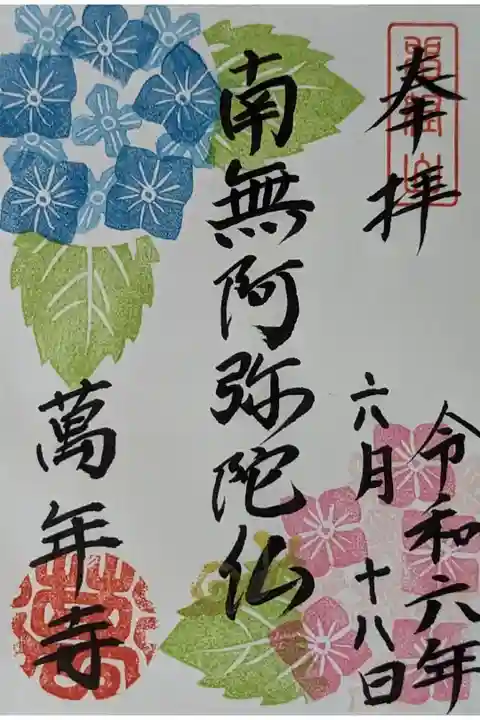 奉拝
令和六年
六月十八日
南無阿弥陀仏
萬年寺